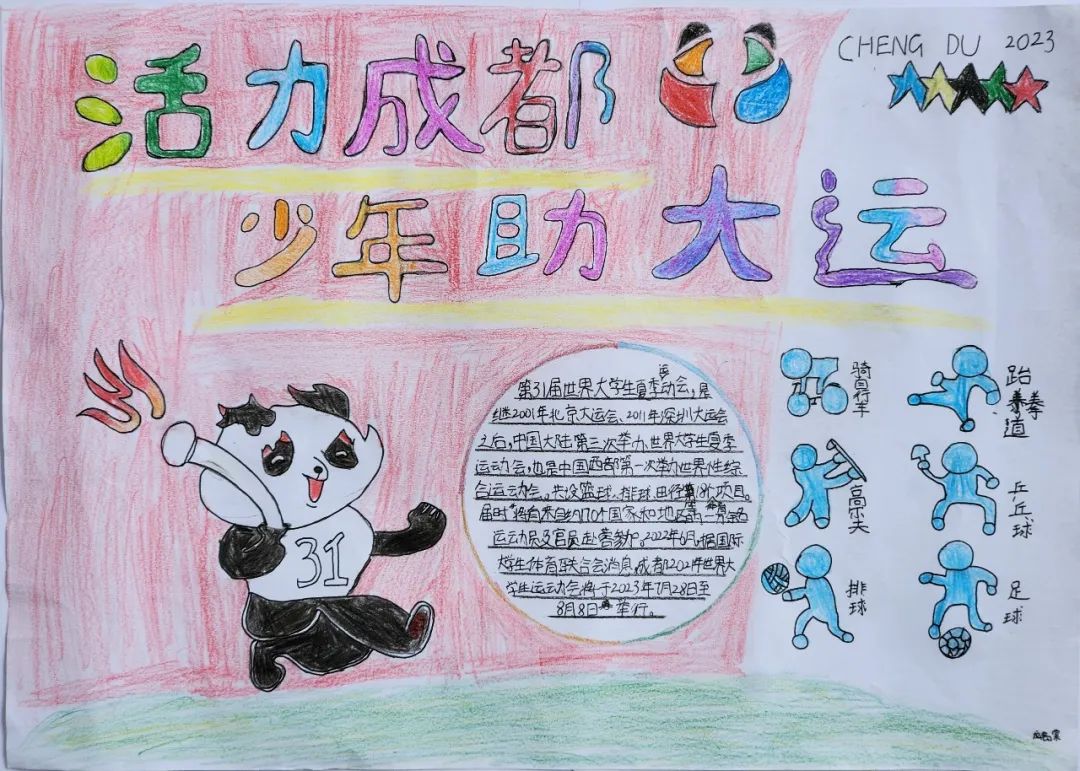 活力成都
CHENG DU 2023
少年助大运
31
第31届世界大学生夏季运动会，是
继2001年北京大运会、2011年深圳大运会
之后，中国大陆第三次举办世界大学生夏季
运动会，也是中国西部第一次举办世界性综
合运动会。共设篮球、排球、田径等18个项目。
届时将有来自约170个国家和地区的一万余名
运动员及官员赴蓉参加。2022年6月，据国际
大学生体育联合会消息，成都2021年世界大
学生运动会将于2023年7月28日至
8月8日举行。
骑自行车
跆拳道
高尔夫
乒乓球
排球
足球